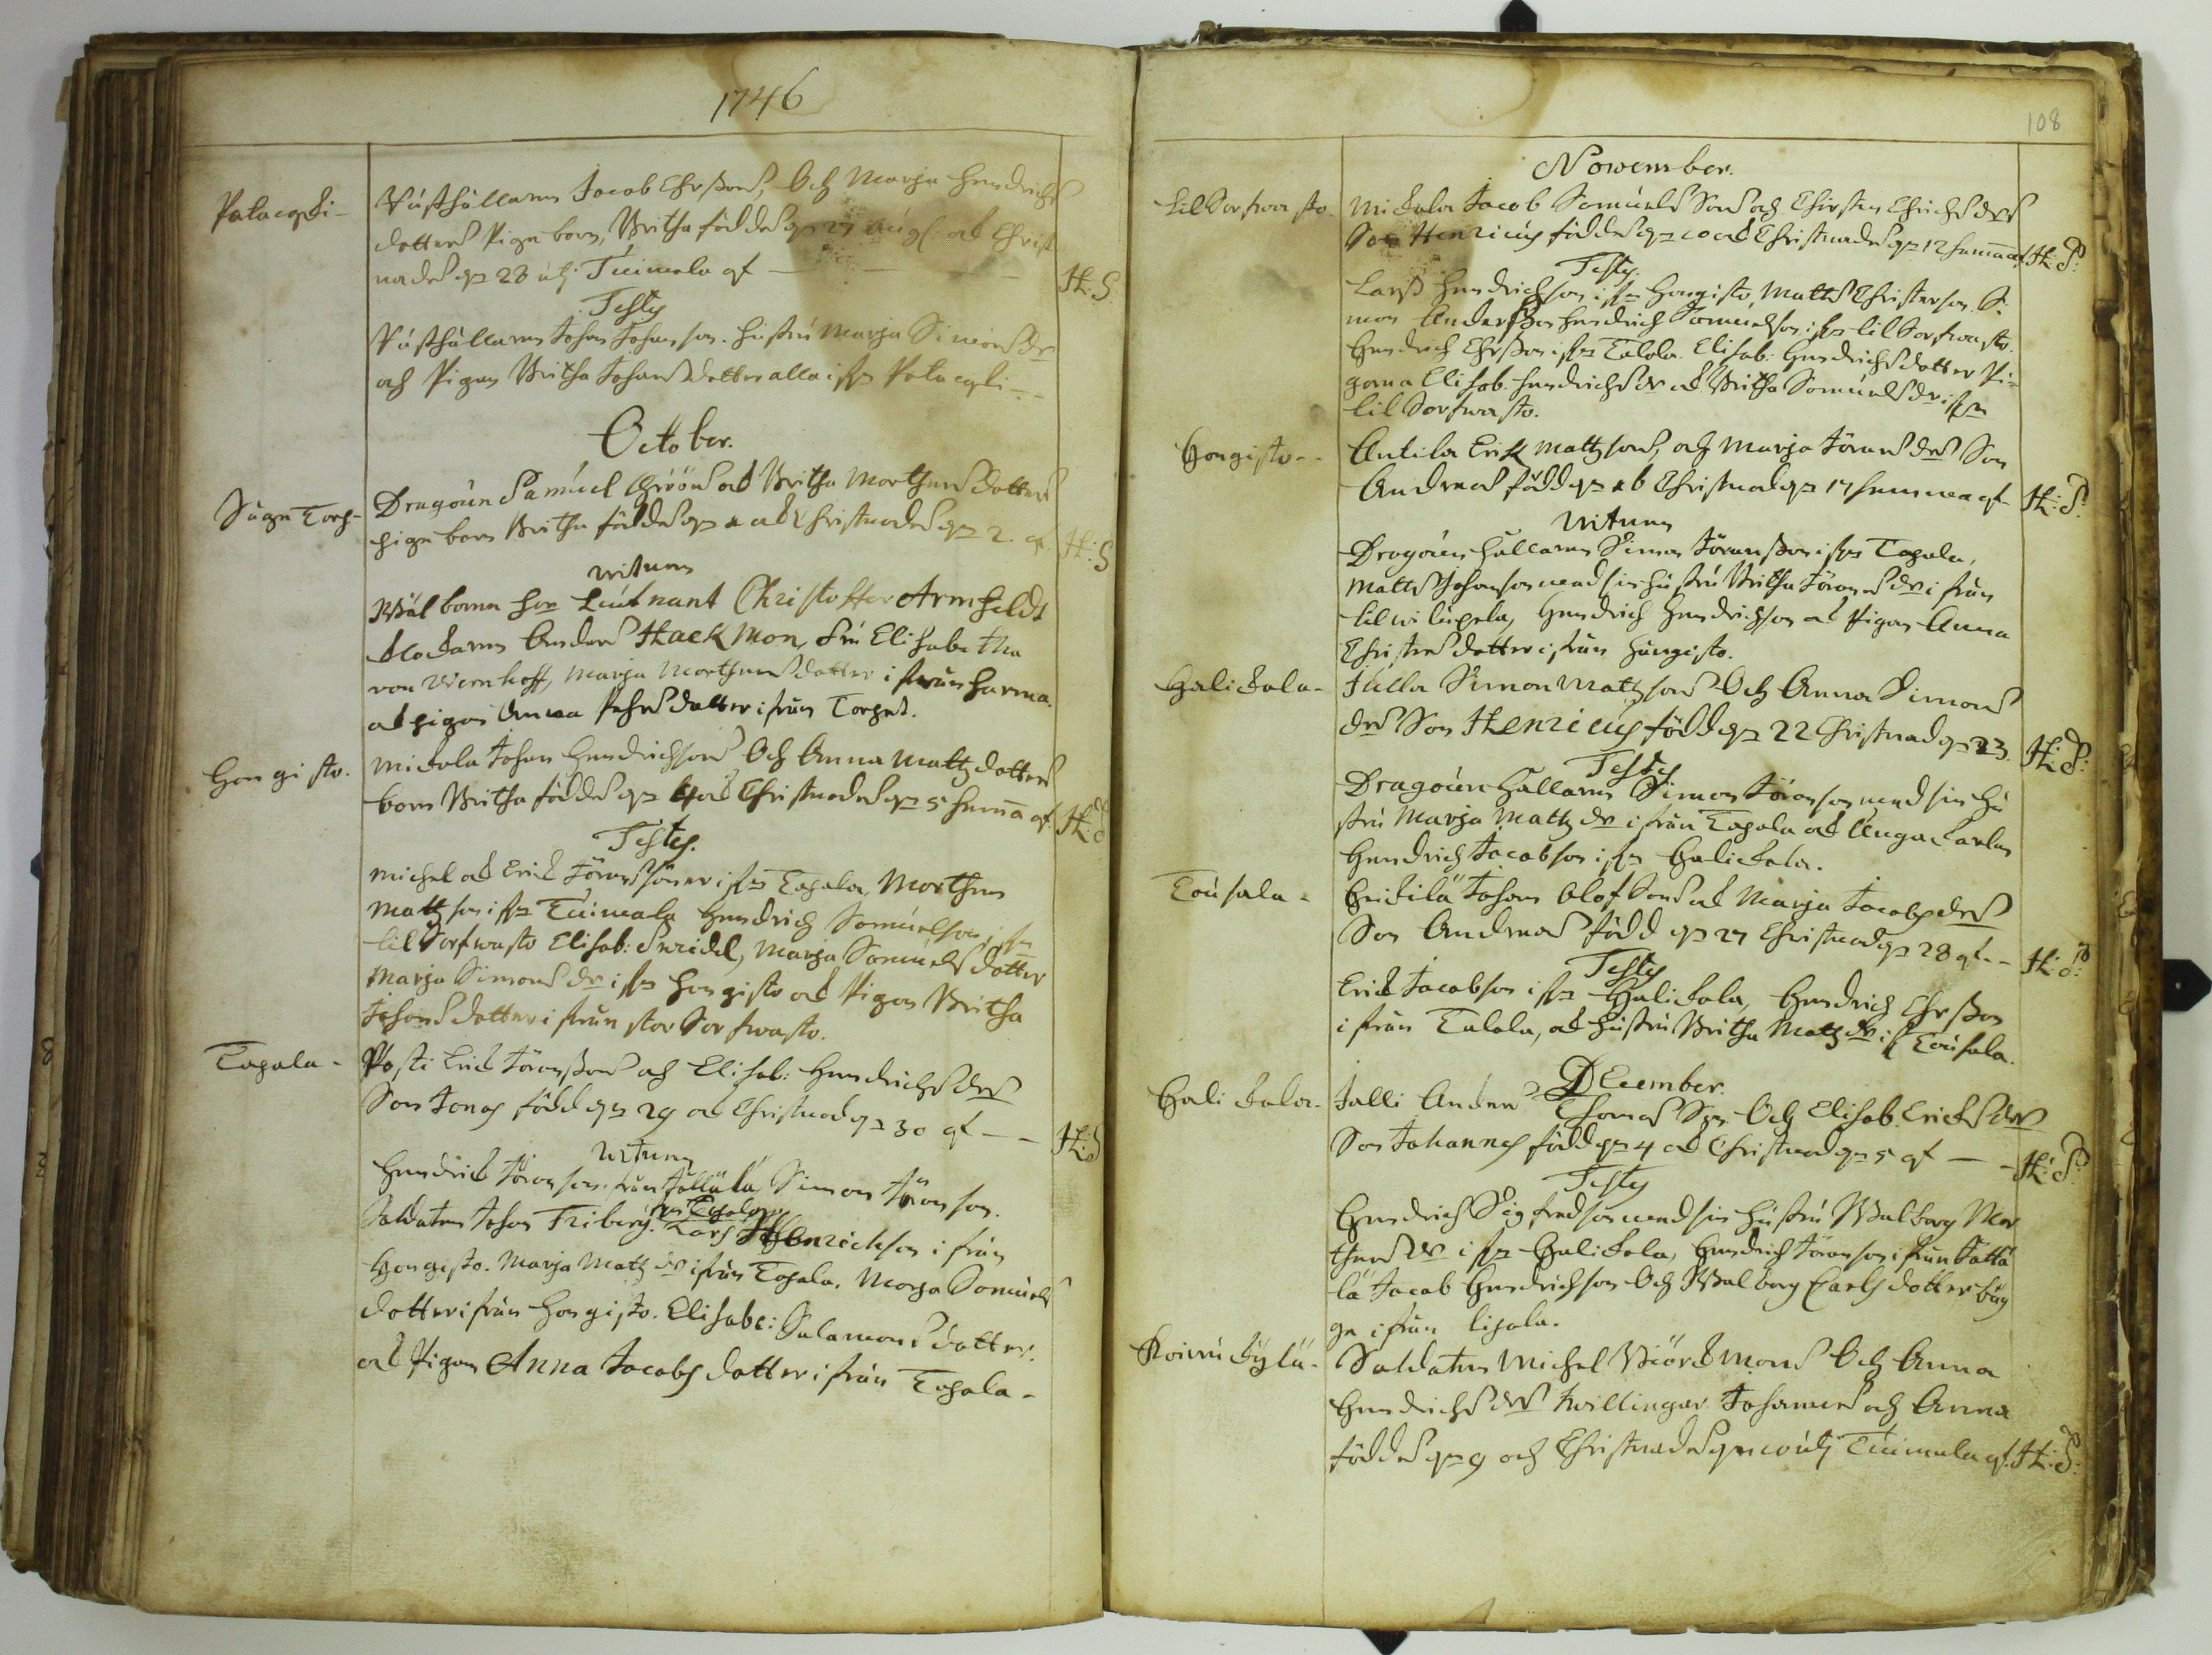 1746
Palacoski-
Rusthållarens Jacob Ehrssons, Och Marja Hendrichs
dotters Pigu barn, Britha föddes d 27 Aug: och Christ
nades d 28 uti Tuimala af — — — H: S.
Testes
Rusthållaren Johan Johansson. hustru Marja Simons dr
och Pigan Britha Johans dotter alla ifrå
October.
Sågu Torp-
Dragoun Samuel Gröön och Britha Morthens dotters
pigu barn Britha föddes d 1 och Christnades d 2. af H: S
Witnen
Wälborne her Leutnant Christoffer Armfeldt
Klockaren Anders Hackmon, fru Elisabetha
von Viernhoff, Marja Morthens dotter ifrån harma.
och pigan Anna Pehrs dotter ifrån Torpet.
Hongisto.
Mickola Johan Hendrichsons Och Anna Matts dotters
barn Britha föddes d 4 och Christnades d 5 hemma af H: S
Testes.
Michel och Erick Jörans söner ifrå Tapala, Morthen
Matsson ifrå Tuimala Hendrich Samuelson ifrå
lil Sorfwasto Elisab: Sneidel, Marja Samuels dotter
Marja Simons dr ifrå Hongisto och Pigan Britha
Johans dotter ifrån stor Sorfwasto.
Tapala-
Posti Erick Jöranssons och Elisab: Hendrichs drs
Son Jonas född d 29 och Christnad d 30 af — — H: S
Witnen
Hendrick Jöranson från Jällälä, Simon Jöranson.
från Tapala
Soldaten Johan Friberg. Lars Henrickson ifrån
Hongisto. Marja Matts dr ifrån Tapala. Marja Samuels
dotter ifrån Hongisto. Elisabe: Salamons dotter.
och Pigan Anna Jacobs dotter ifrån Tapala-
108
Nowember.
Lil Sorfwasto.
Mickola Jacob Samuels Sons och Christin Ehrichs drs
Son Henricus föddes d 10 och Christnades d 12 hemma af H: S:
Testes.
Lars Hendrichson ifrå Hongisto, Matts Christerson Si
mon Andersson Hendrich Samuelson ifrå lil Sorfwasto.
Hendrich Ehrsson ifrå Talola. Elisab: Hendrichs dotter Pi-
gorna Elisab. Hendrichs dr och Britha Samuels dr ifrå
lil Sorfwasto.
Hongisto--
Antila Erik Mattsons, och Marja Jörans drs Son
Andreas född d 16 Christnad d 17 hemma af H: S:
Witnen
Dragounhållaren Simon Jöransson ifrå Tapala,
Matts Johanson med sin hustru Britha Jörans dr ifrån
Hendrich Hendrichson och Pigan Anna
Christers dotter ifrån Hongisto.
Halickala-
Julla Simon Mattsons Och Anna Simons
drs Son Henricus född d 22 Christnad d 23. H: S:
Testes.
Dragounhållaren Simon Jöranson med sin hu
stru Marja Matts dr ifrån Tapala och Unga Karlen
Hendrich Jacobson ifrå Halickala.
Tousala-
Heickilä Johan Olofsons och Marja Jacobs drs
Son Andreas född d 27 Christnad d 28 af-- H: S:
Testes
Erick Jacobson ifrå Halickala, Hendrich Ehrsson
ifrån Talola, och hustru Britha Matts dr ifr Tousala.
DEcember.
Halickala-
Jalli Anders Thomas Sons Och Elisab. Ericks drs
Son Johannes född d 4 och Christnad d 5 af — - H: S:
Testes
Hendrich Sigfredson med sin hustru Walborg Mor
thens dr ifrå Halickala, Hendrich Jöranson ifrån Jällä
lä Jacob Hendrichson Och Walborg Carls dotter bäg
ge ifrån lipala.
Koiwukylä-
Soldaten Michel Biörckmons Och Anna
Hendrichs drs twillingar Johannes och Anna
föddes d 9 och Christnades d 10 uti Tuimala af. H: S: